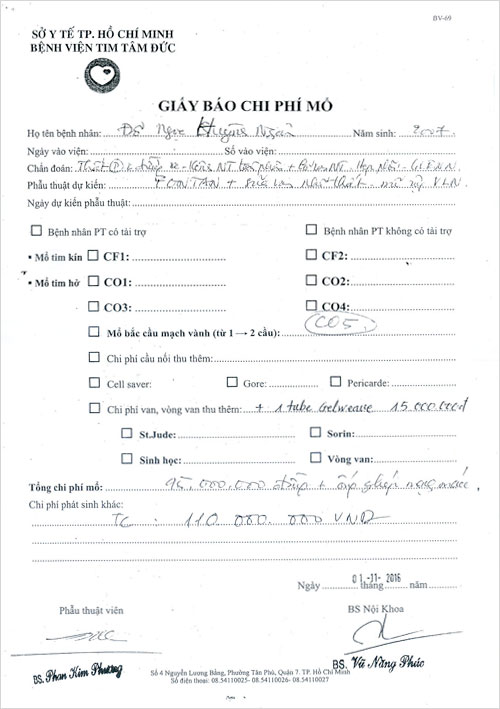 BV-69
SỞ Y TẾ TP. HỒ CHÍ MINH
BỆNH VIỆN TIM TÂM ĐỨC
GIẤY BÁO CHI PHÍ MỔ
Họ tên bệnh nhân: Đỗ Ngọc Huỳnh Ngân Năm sinh: 2007
Ngày vào viện: Số vào viện:
Chẩn đoán: NT + NT. GLENN
Phẫu thuật dự kiến: FONTAN + VLN
Ngày dự kiến phẫu thuật:
Bệnh nhân PT có tài trợ Bệnh nhân PT không có tài trợ
• Mổ tim kín CF1: CF2:
• Mổ tim hở CO1: CO2:
CO3: CO4:
Mổ bắc cầu mạch vành (từ 1→2 cầu): CO5
Chi phí cầu nối thu thêm:
Cell saver: Gore: Pericarde:
Chi phí van, vòng van thu thêm: + 1 tube Gelweave 15.000.000đ
St.Jude: Sorin:
Sinh học: Vòng van:
Tổng chi phí mổ: 95.000.000 + ống ghép mạch máu.
Chi phí phát sinh khác:
TC : 110.000.000 VNĐ
Ngày 01-11-2016 tháng năm
Phẫu thuật viên BS Nội Khoa
BS. Phan Kim Phương BS. Vũ Năng Phúc
Số 4 Nguyễn Lương Bằng, Phường Tân Phú, Quận 7. TP. Hồ Chí Minh
Số điện thoại: 08.54110025- 08.54110026- 08.54110027